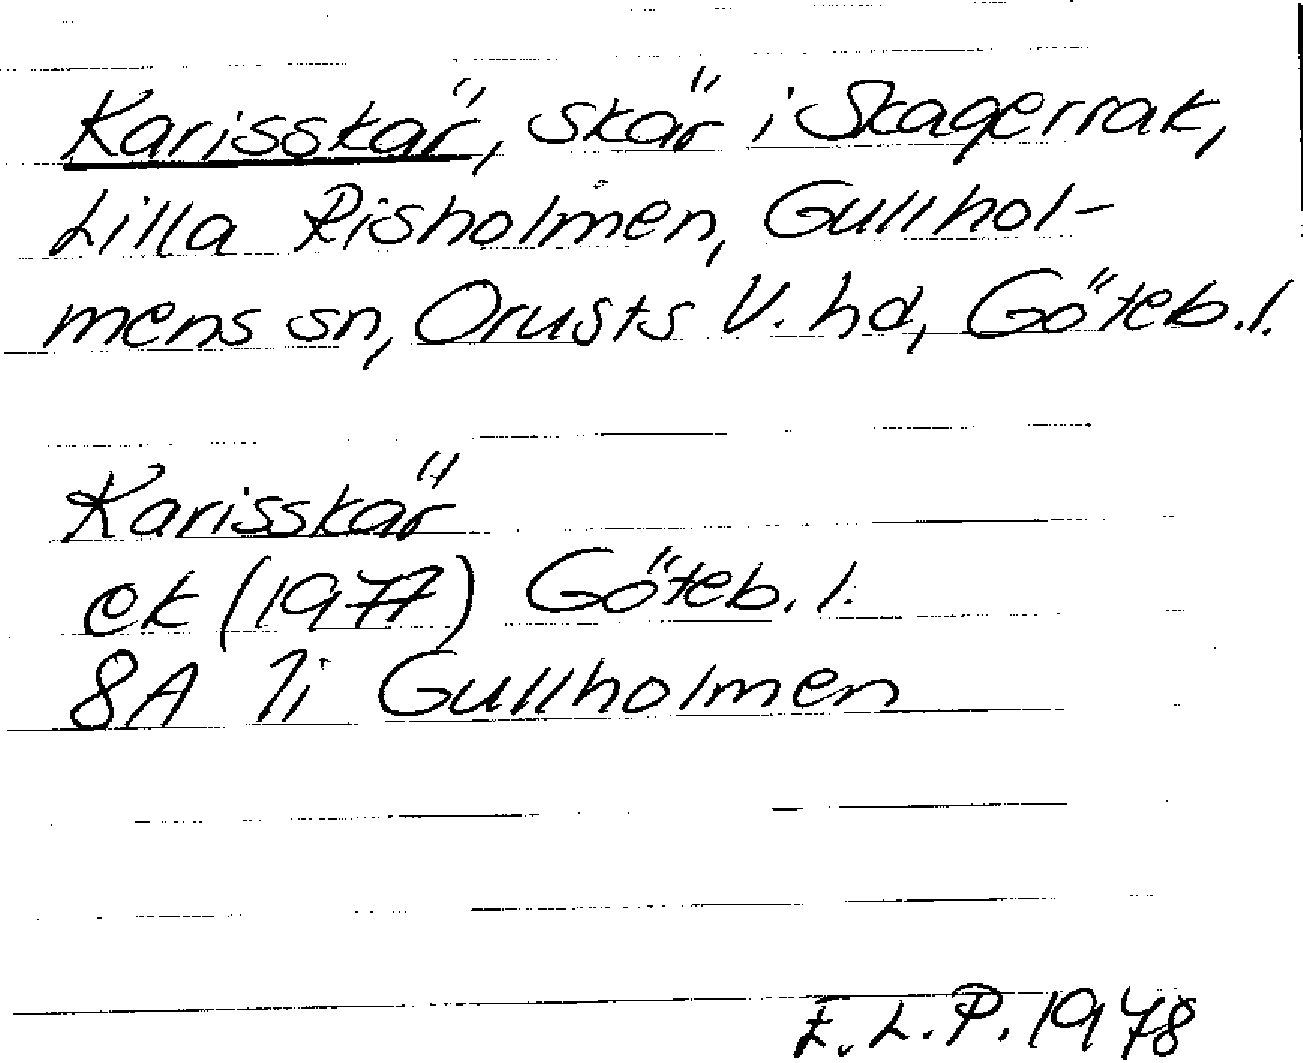 Karisskär, skär i Skagerrak,
Lilla Risholmen, Gullhol-
mens sn, Orusts V. hd, Göteb. l.
Karisskär
ek (1977) Göteb. l.
8A 7i Gullholmen
E. L. P. 1978